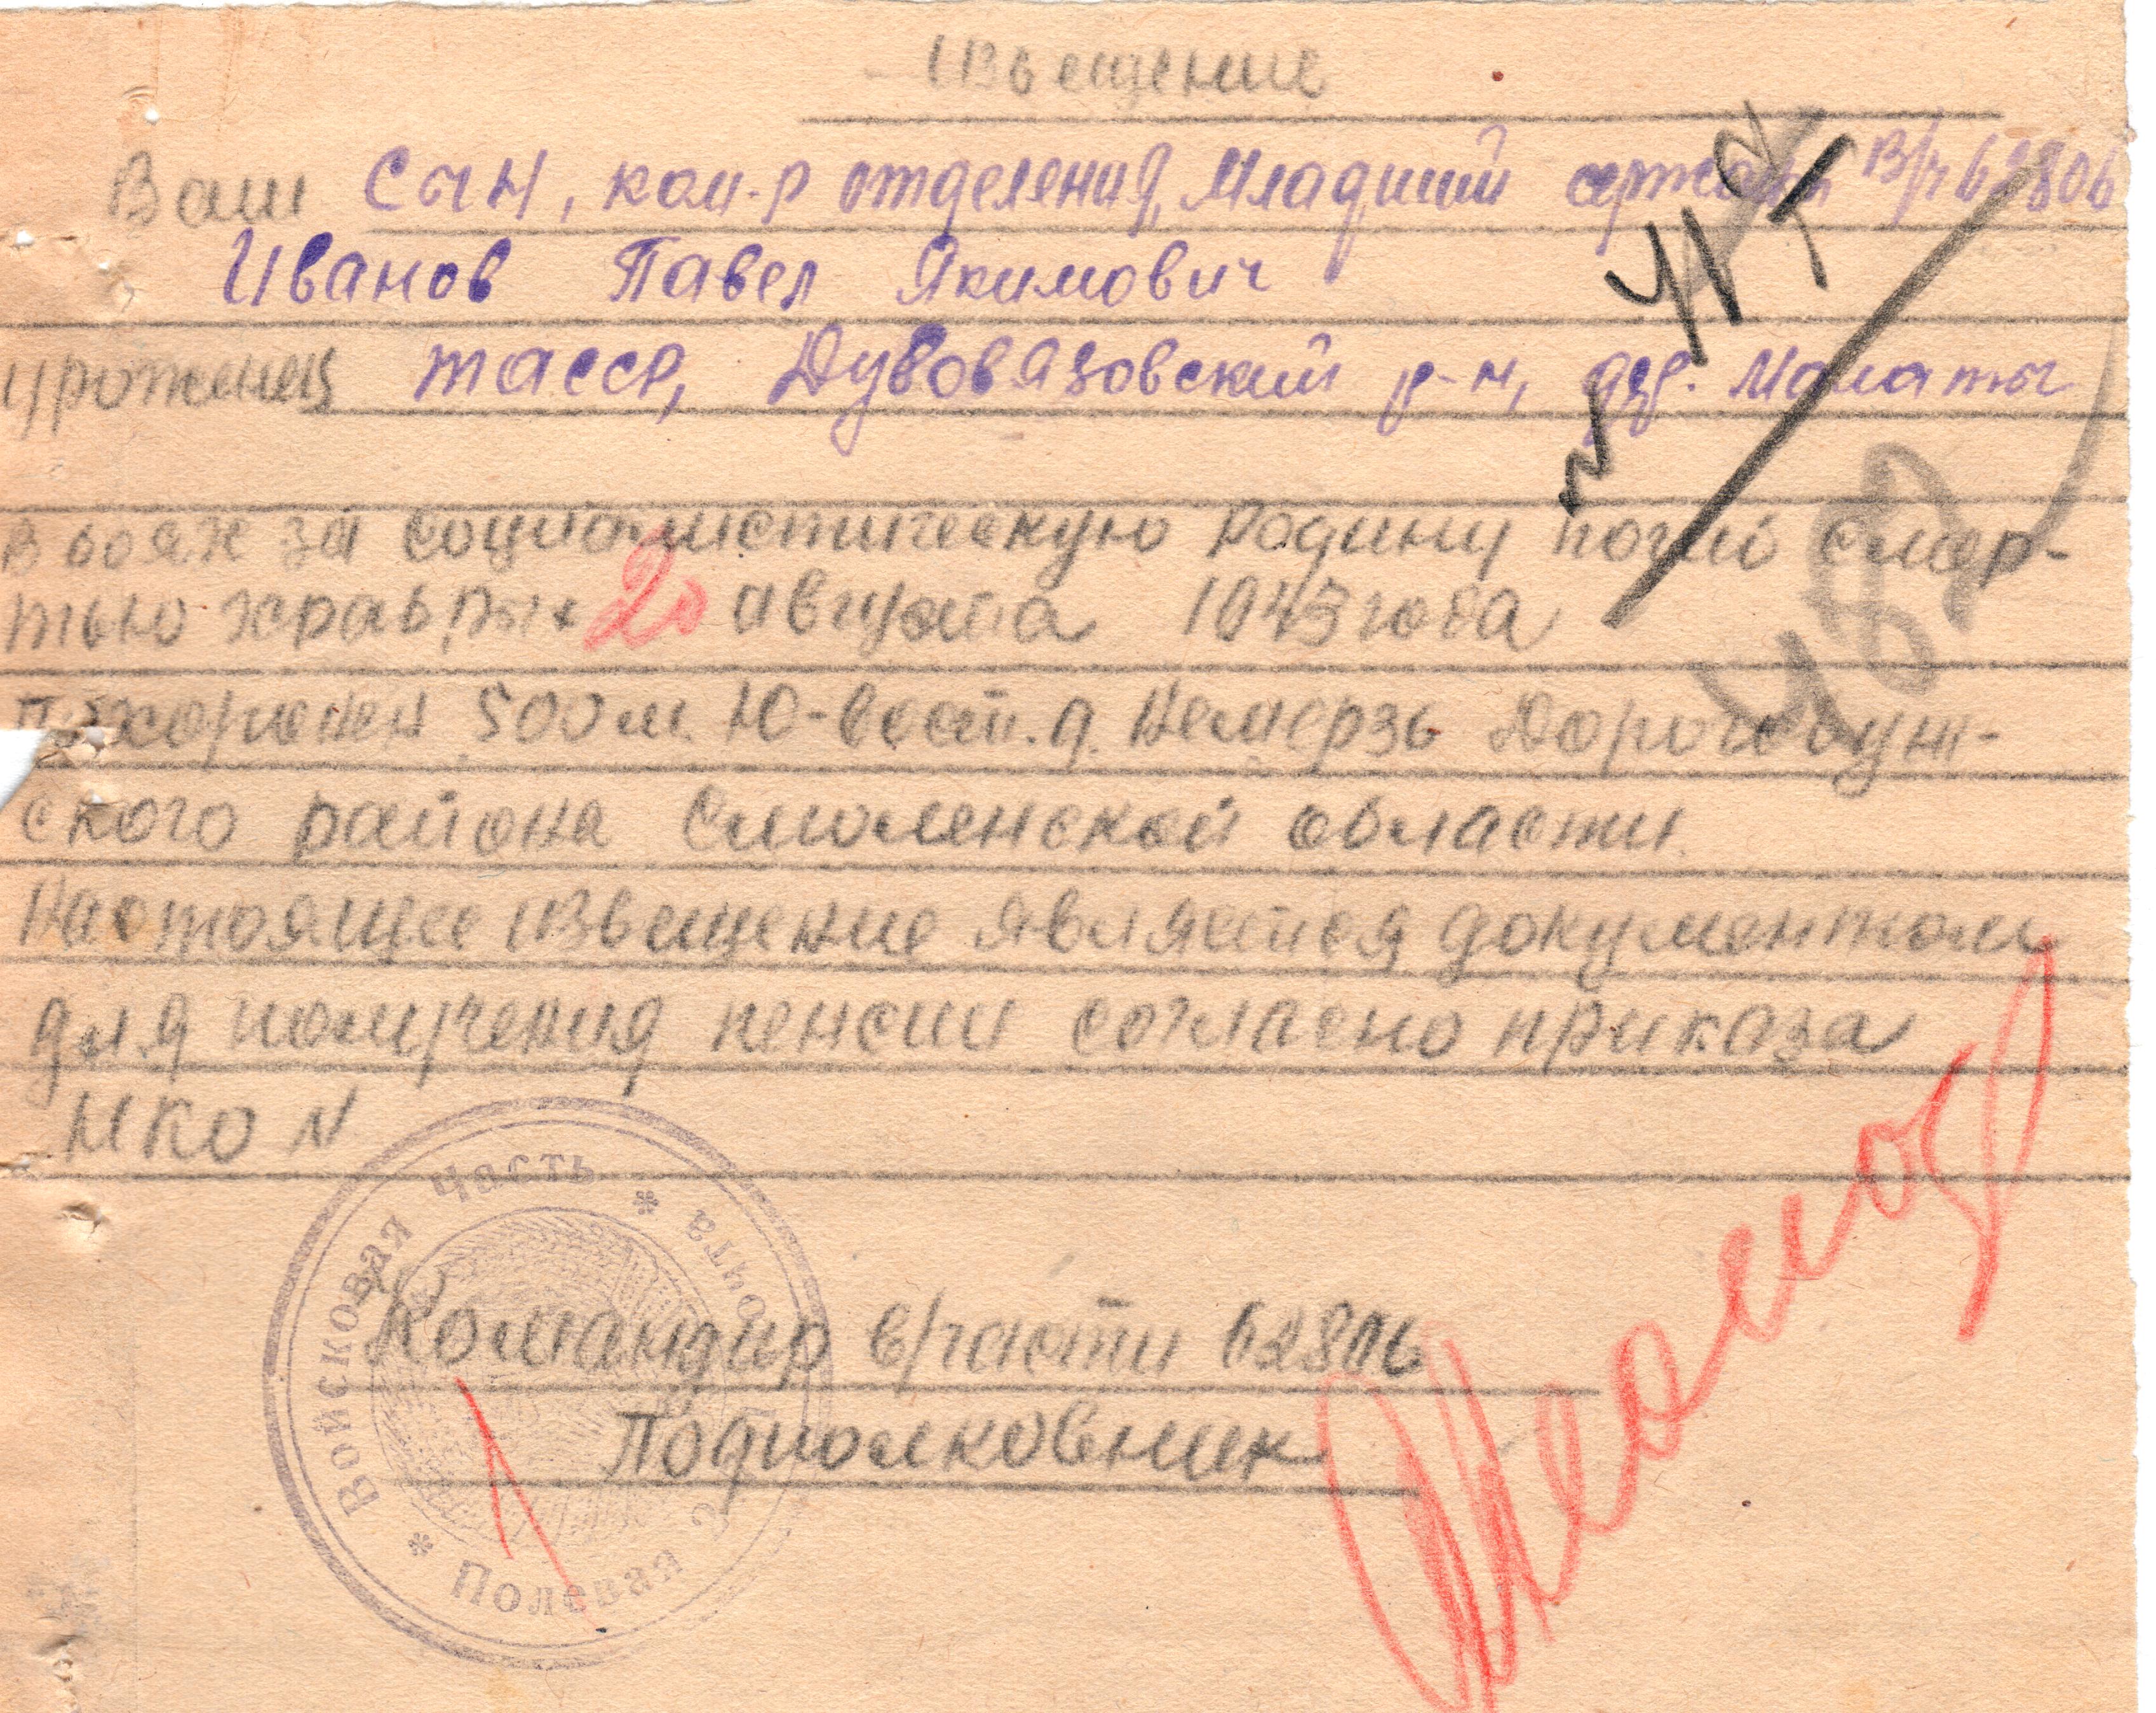 Извещение
Ваш сын, ком-р отделения, младший сержант в/ч 62806
Иванов Павел Якимович
уроженец тасср, Дубовязовский р-н, дер.
в боях за социалистическую родину погиб смер-
тью храбрых 20 августа 1943 года
похоронен 500 м. Ю-вост. д. Немерзь Дорогобуж-
ского района Смоленской области.
Настоящее извещение является документом
для получения пенсии согласно приказа
НКО N
Войсковая часть * Полевая почта *
Командир в/части 62806
Подполковник